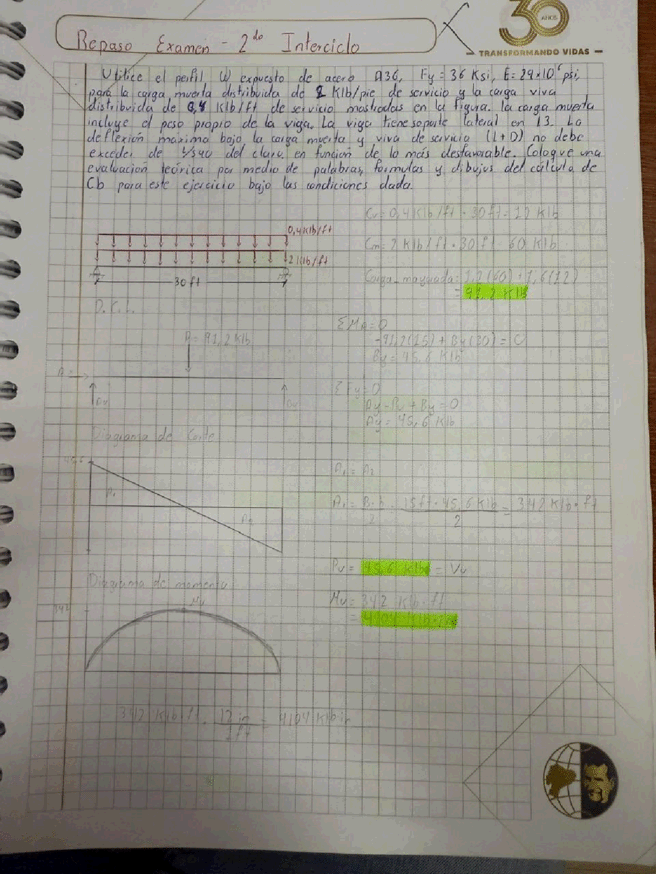 30
AÑOS
TRANSFORMANDO VIDAS
Repaso Examen - 2do Interciclo
Utilice el perfil W expuesto de acero A36, Fy = 36 Ksi, E = 29×10⁶ psi,
para la carga muerta distribuida de 2 Klb/pie de servicio y la carga viva
distribuida de 0,4 Klb/ft de servicio mostradas en la figura. la carga muerta
incluye el peso propio de la viga. La viga tiene soporte lateral en L3. La
deflexión máxima bajo la carga muerta y viva de servicio (L+D) no debe
exceder de L/540 del claro en función de lo más desfavorable. Coloque una
evaluación teórica por medio de palabras, formulas y dibujos del cálculo de
Cb para este ejercicio bajo las condiciones dada.
Cv = 0,4 Klb/ft · 30 ft = 12 Klb
0,4 Klb/ft
Cm = 2 Klb/ft · 30 ft = 60 Klb
2 Klb/ft
30 ft
Carga mayorada = 1,2(60) + 1,6(12)
= 91,2 Klb
D.C.L.
ΣMA = 0
-91,2(15) + By(30) = 0
By = 45,6 Klb
R = 91,2 Klb
ΣFy = 0
Ay - Pu + By = 0
Ay = 45,6 Klb
Ay
Diagrama de Corte
45,6
A1
A1 = B·h / 2 = 15 ft · 45,6 Klb / 2 = 342 Klb·ft
Pu = 45,6 Klb = Vu
Diagrama de momento
Mu
342
Mu = 342 Klb·ft
= 4104 Klb·in
342 Klb·ft · 12 in / 1 ft = 4104 Klb·in